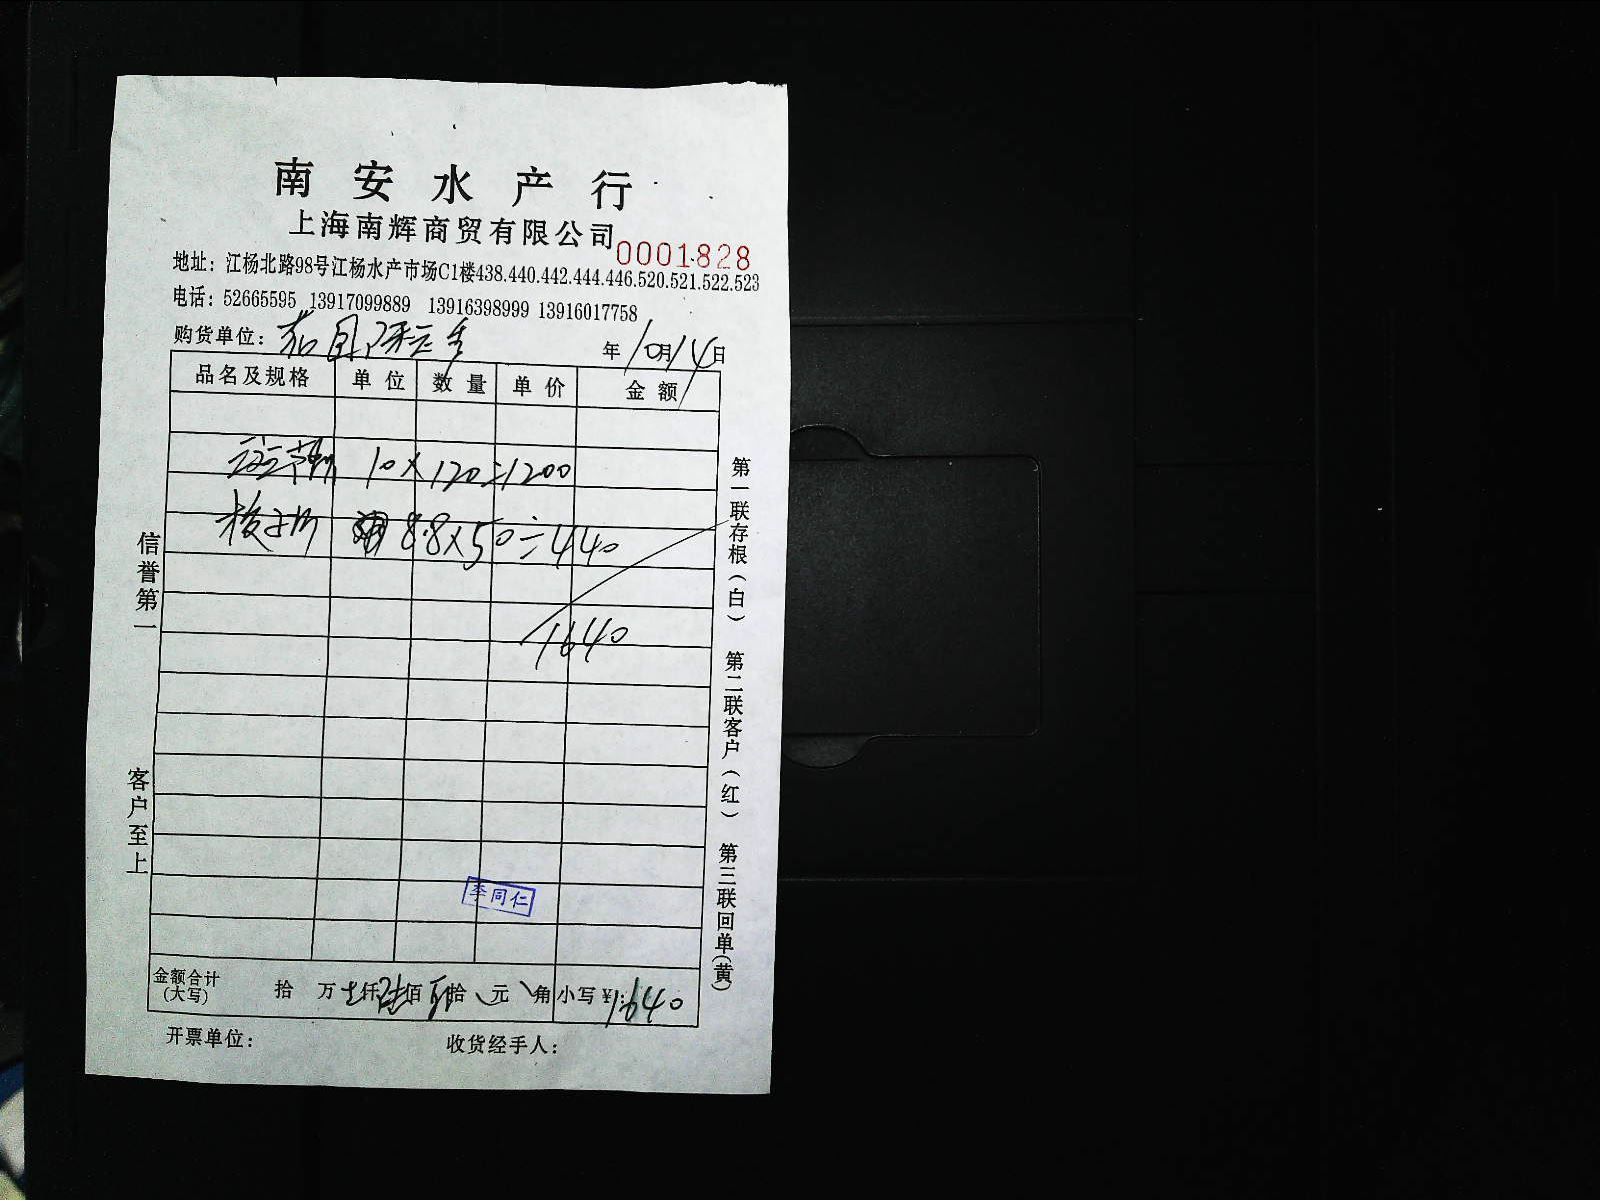 南安水产行
上海南辉商贸有限公司
0001828
地址：江杨北路98号江杨水产市场C1楼438.440.442.444.446.520.521.522.523
电话：52665595 13917099889 13916398999 13916017758
购货单位：
年10月14日
品名及规格 单位 数量 单价 金额
10×120=1200
梭子 8.8×50=440
1640
李同仁
金额合计(大写) 拾 万 仟陆佰 拾 元 角 小写￥：1640
开票单位： 收货经手人：
信誉第一
客户至上
第一联存根(白) 第二联客户(红) 第三联回单(黄)